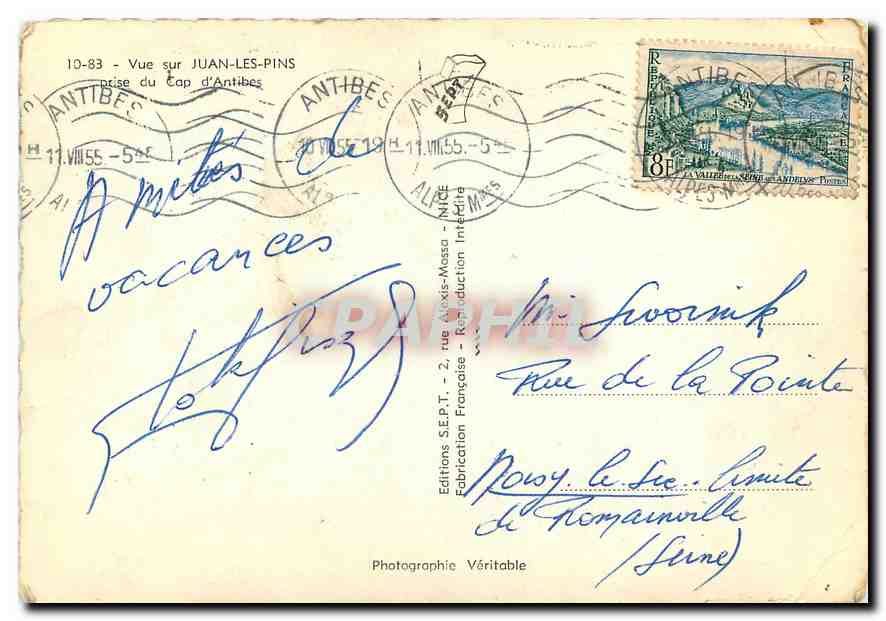 10-83 - Vue sur JUAN-LES-PINS
prise du Cap d'Antibes
ANTIBES
11.VIII 55. - 5
ANTIBES
19H
ANTIBES
11.VIII.55. - 5
ALPES Mmes
SEPT
REPUBLIQUE FRANÇAISE
8F
LA VALLÉE DE LA SEINE AUX ANDELYS POSTES
ALPES-M
Amitiés de
vacances
Editions S.E.P.T. - 2, rue Alexis-Mossa - NICE
Fabrication Française - Reproduction Interdite
CPAPHIL
Rue de la Pointe
Noisy-le-Sec - limite
de Romainville
(Seine)
Photographie Véritable